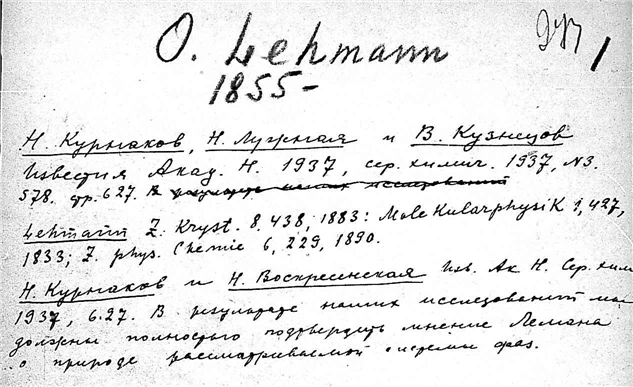 O. Lehmann
1855-
Н. Курнаков, Н. Лужная и В. Кузнецов
Известия Акад. Н. 1937, сер. химич. 1937, N3.
578. стр. 627. В результате наших исследований
Lehmann Z. Kryst. 8. 438, 1883: Molekularphysik 1, 427,
1833; Z. phys. Chemie 6, 229, 1890.
Н. Курнаков и Н. Воскресенская Изв. Ак. Н. Сер. хим
1937, 6.27. В результате наших исследований мы
должны полностью подтвердить мнение Лемана
о природе рассматриваемой системы фаз.